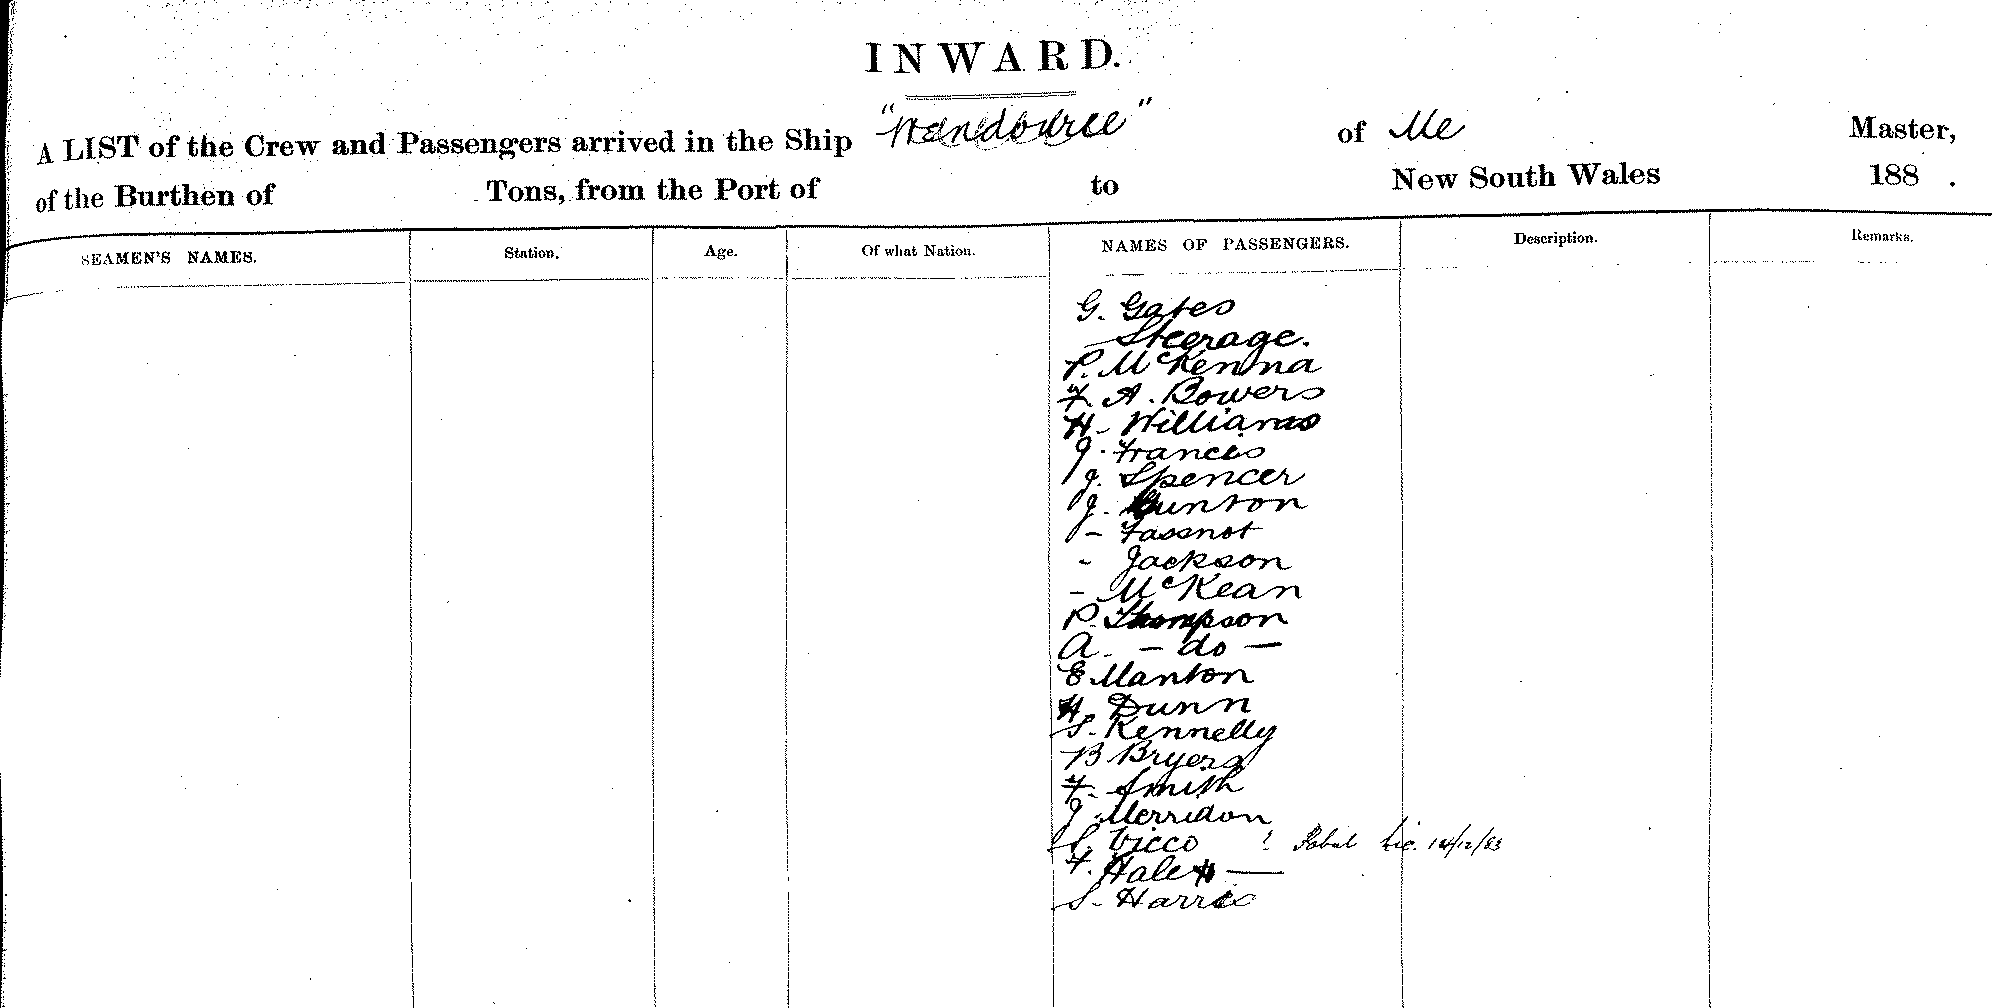 INWARD.
A LIST of the Crew and Passengers arrived in the Ship "Wendouree" of Me Master,
of the Burthen of Tons, from the Port of to New South Wales 188 .
SEAMEN'S NAMES. Station. Age. Of what Nation. NAMES OF PASSENGERS. Description. Remarks.
G. Gates
Steerage.
P. McKenna
F. A. Bowers
H. Williams
J. Francis
J. Spencer
J. Gunton
- Fassnot
- Jackson
- McKean
P. Thompson
A. - do -
E Manton
H. Dunn
S. Kennelly
B Bryers
F. Smith
J. Merridon
S. Vicco ? 14/12/83
F. Hale
S. Harris